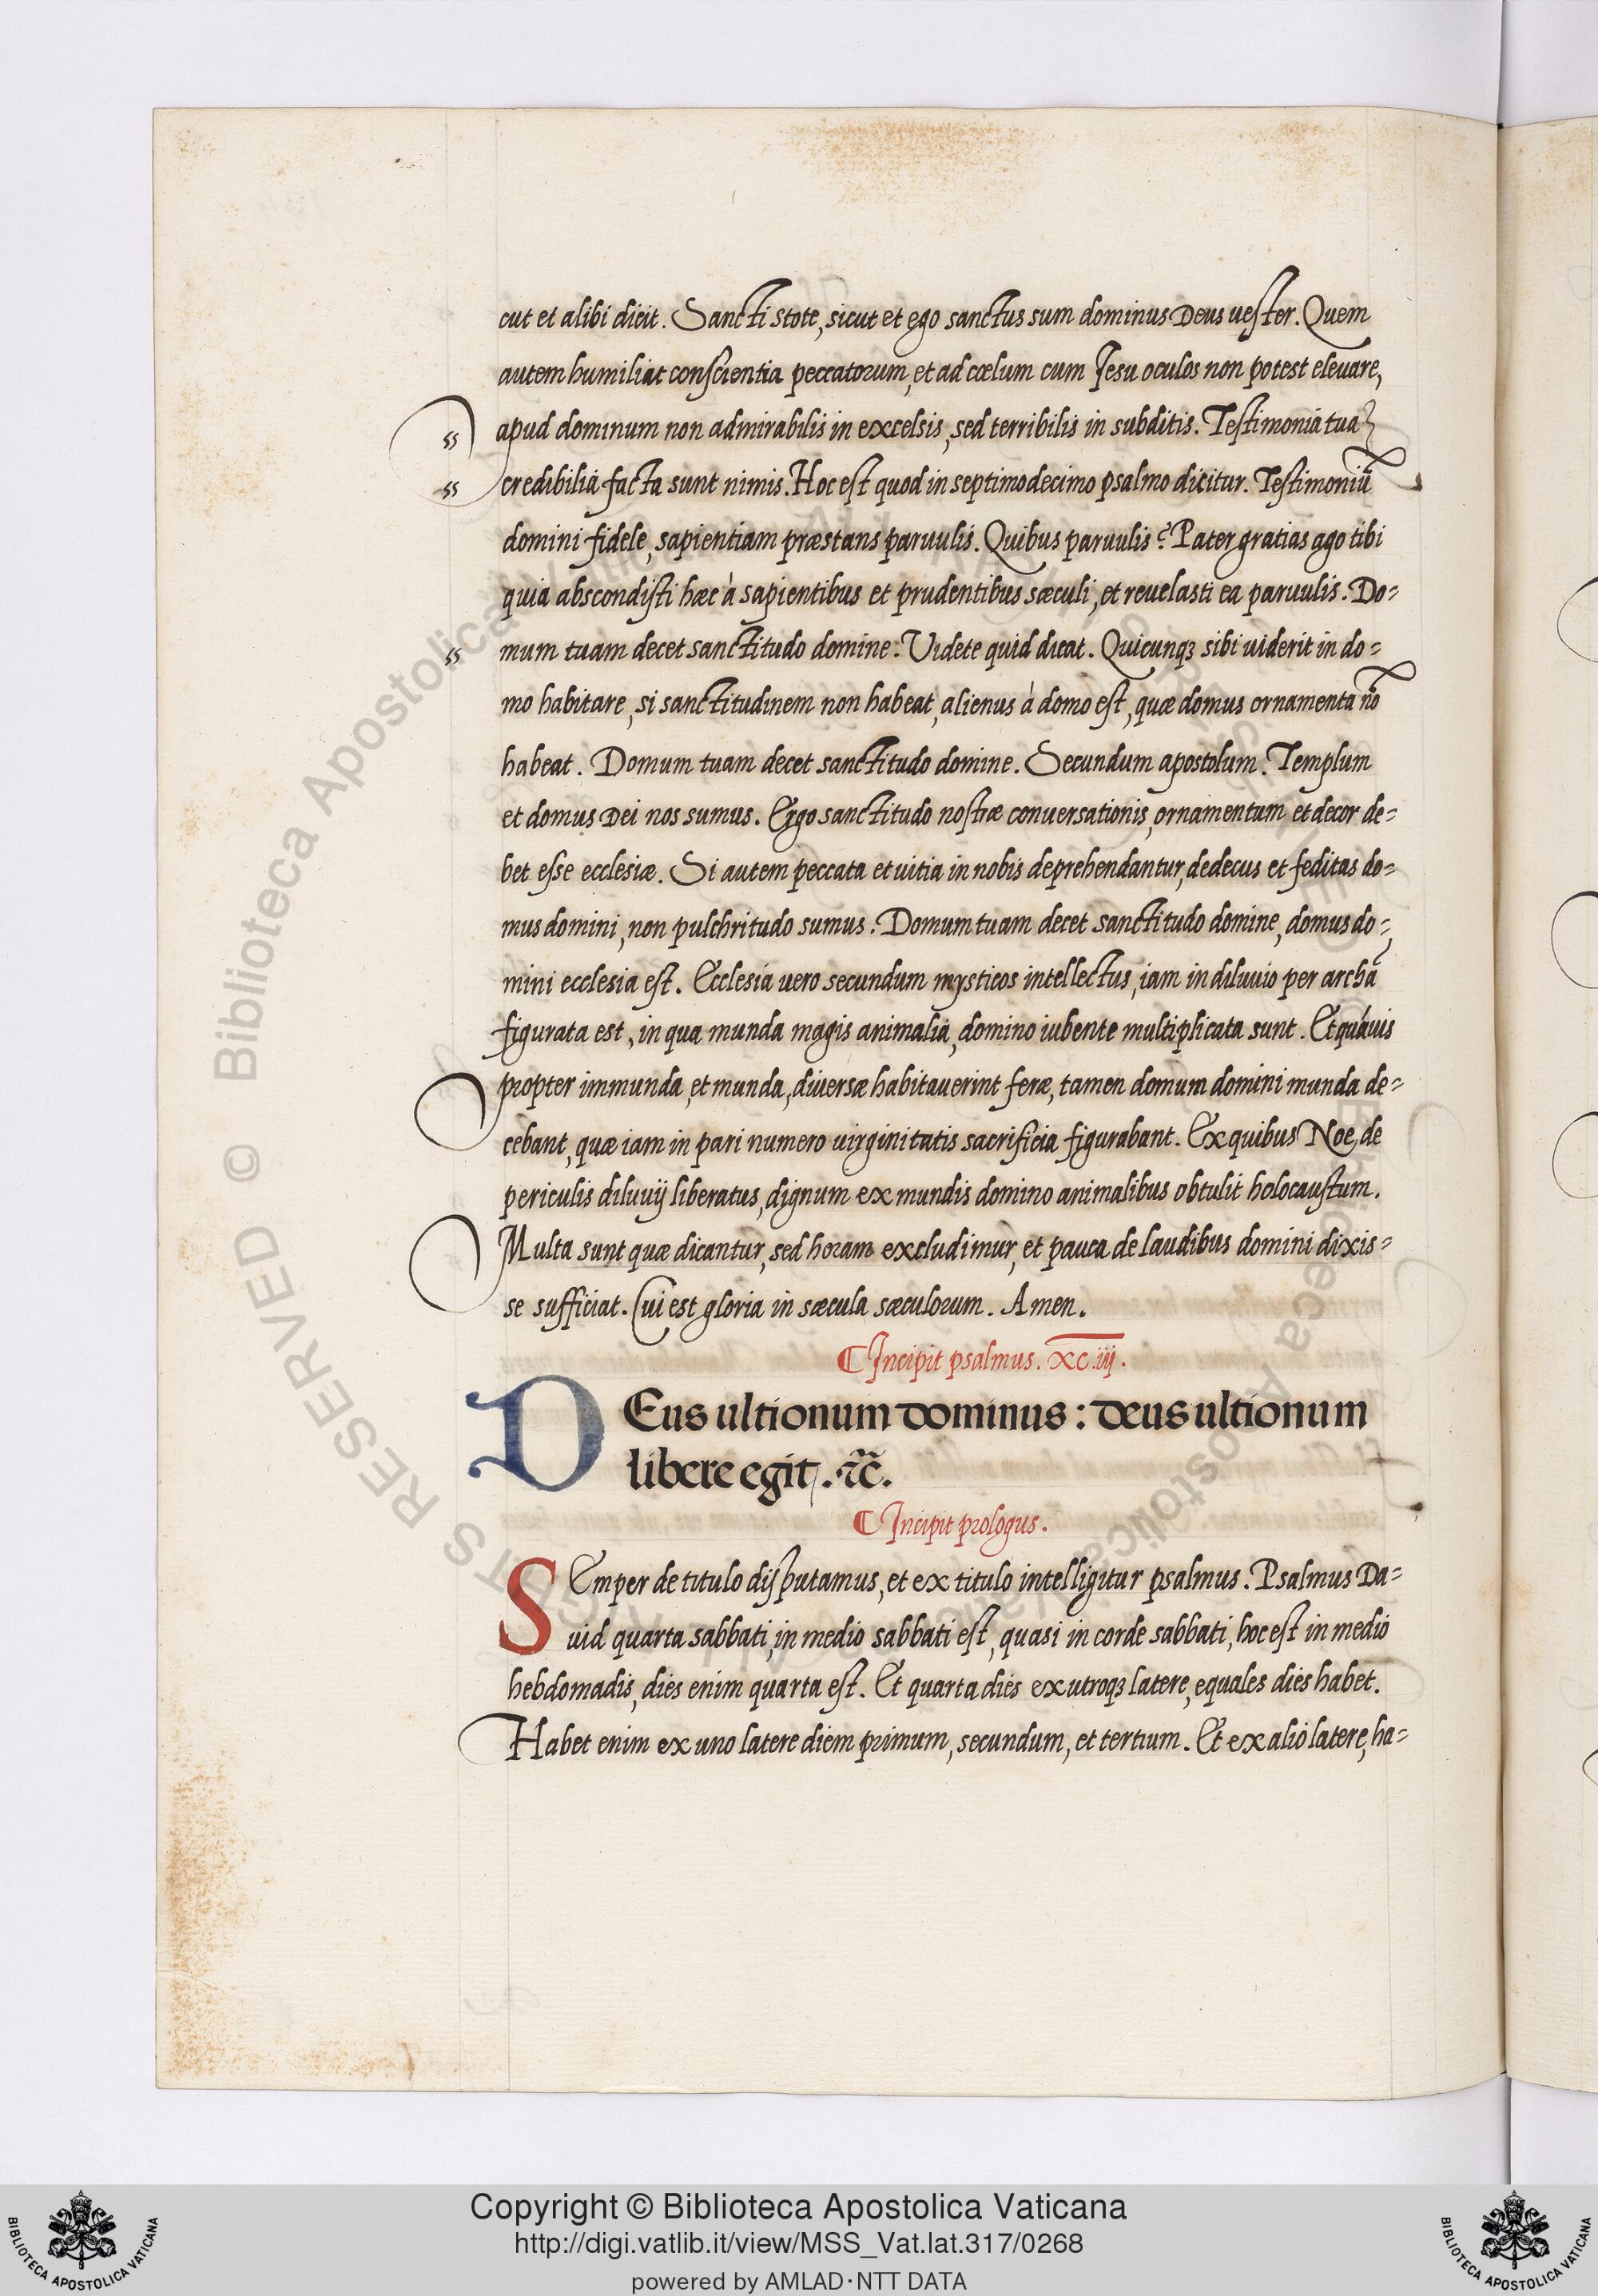 cut et alibi dicit. Sancti stote, sicut et ego sanctus sum dominus Deus uester. Quem
autem humiliat conscientia peccatorum, et ad cœlum cum Jesu oculos non potest eleuare,
apud dominum non admirabilis in excelsis, sed terribilis in subditis. Testimonia tua
credibilia facta sunt nimis. Hoc est quod in septimodecimo psalmo dicitur. Testimoniũ
domini fidele, sapientiam præstans paruulis. Quibus paruulis? Pater gratias ago tibi
quia abscondisti hæc à sapientibus et prudentibus sæculi, et reuelasti ea paruulis. Do=
mum tuam decet sanctitudo domine. Videte quid dicat. Quicunqꝫ sibi uiderit in do=
mo habitare, si sanctitudinem non habeat, alienus à domo est, quæ domus ornamenta nõ
habeat. Domum tuam decet sanctitudo domine. Secundum apostolum. Templum
et domus Dei nos sumus. Ergo sanctitudo nostræ conuersationis, ornamentum et decor de=
bet esse ecclesiæ. Si autem peccata et uitia in nobis deprehendantur, dedecus et feditas do=
mus domini, non pulchritudo sumus. Domum tuam decet sanctitudo domine, domus do=
mini ecclesia est. Ecclesia uero secundum mysticos intellectus, iam in diluuio per archã
figurata est, in qua munda magis animalia, domino iubente multiplicata sunt. Et quãuis
propter immunda, et munda, diuersæ habitauerint feræ, tamen domum domini munda de=
cebant, quæ iam in pari numero uirginitatis sacrificia figurabant. Ex quibus Noe, de
periculis diluuij liberatus, dignum ex mundis domino animalibus obtulit holocaustum.
Multa sunt quæ dicantur, sed horam excludimur, et pauca de laudibus domini dixis=
se sufficiat. Cui est gloria in sæcula sæculorum. Amen.
¶ Incipit psalmus. xc.iij.
DEus ultionum dominus: deus ultionum
libere egit. ⁊c̃.
¶ Incipit prologus.
SEmper de titulo disputamus, et ex titulo intelligitur psalmus. Psalmus Da=
uid quarta sabbati, in medio sabbati est, quasi in corde sabbati, hoc est in medio
hebdomadis, dies enim quarta est. Et quarta dies ex utroqꝫ latere, equales dies habet.
Habet enim ex uno latere diem primum, secundum, et tertium. Et ex alio latere, ha=
Copyright © Biblioteca Apostolica Vaticana
http://digi.vatlib.it/view/MSS_Vat.lat.317/0268
powered by AMLAD·NTT DATA
BIBLIOTECA APOSTOLICA VATICANA
BIBLIOTECA APOSTOLICA VATICANA